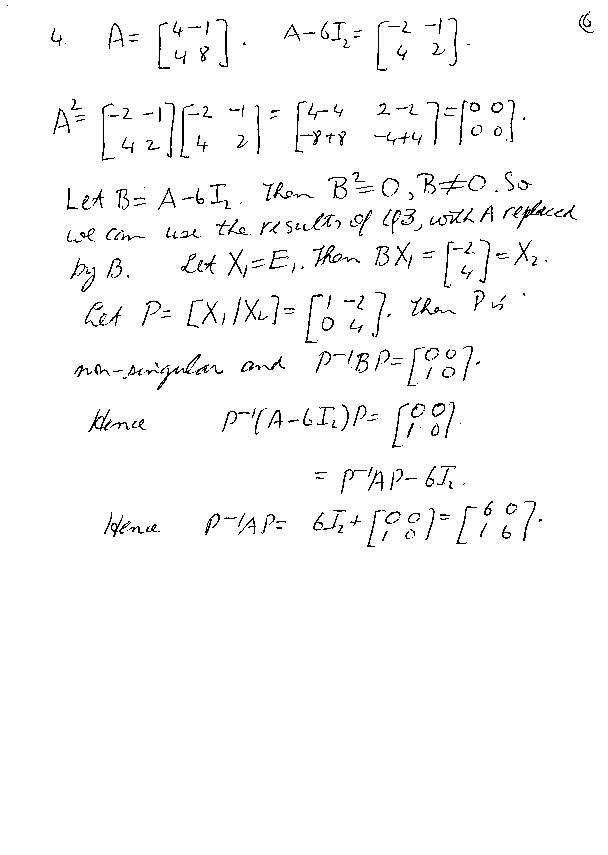 6
4. A = [4 -1; 4 8]. A-6I₂ = [-2 -1; 4 2].
A² = [-2 -1; 4 2][-2 -1; 4 2] = [4-4 2-2; -8+8 -4+4] = [0 0; 0 0].
Let B = A-6I₂. Then B² = 0, B≠0. So
we can use the results of Q3, with A replaced
by B. Let X₁ = E₁. Then BX₁ = [-2; 4] = X₂.
Let P = [X₁|X₂] = [1 -2; 0 4]. Then P is
non-singular and P⁻¹BP = [0 0; 1 0].
Hence P⁻¹(A-6I₂)P = [0 0; 1 0]
= P⁻¹AP - 6I₂.
Hence P⁻¹AP = 6I₂ + [0 0; 1 0] = [6 0; 1 6].